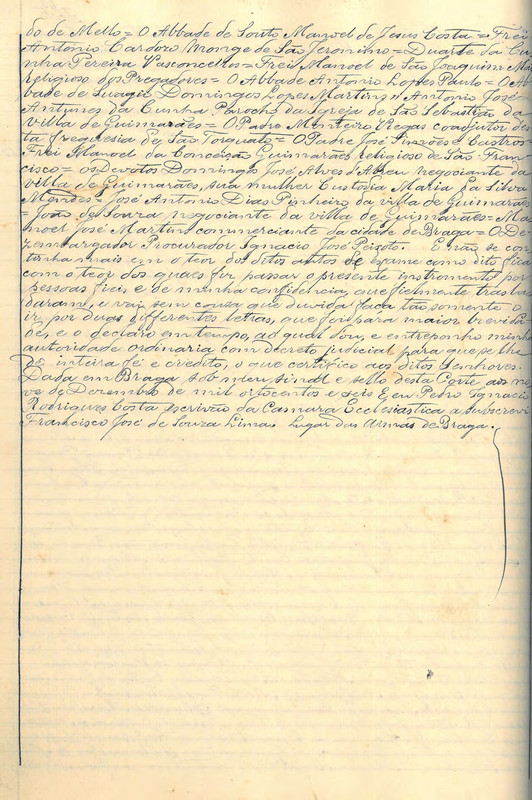 do de Mello = O Abbade de Souto Manoel de Jesus Costa = Frei
Antonio Cardozo Monge de São Jeronimo = Duarte da Cu-
nha Pereira Vasconcellos = Frei Manoel de São Joaquim M
religioso dos Pregadores = O Abbade Antonio Lopes Paulo = O Ab-
bade de Domingos Lopes Martins = Antonio José
Antunes da Cunha Parocho da Igreja de São Sebastião da
villa de Guimarães = O Padre Monteiro Viegas coadjutor des-
ta freguesia de São Torquato = O Padre José Simões Castro =
Frei Manoel da Conceição Guimarães religioso de São Fran-
cisco = os Devotos Domingos José Alves d'Abreu negociante da
villa de Guimarães, sua mulher Custodia Maria da Silva
Mendes = José Antonio Dias Pinheiro da villa de Guimarães
= João de Souza negociante da villa de Guimarães = Ma-
noel José Martins commerciante da cidade de Braga = O De-
zembargador Procurador Ignacio José Peisoto. E não se con-
tinha mais em o teor dos ditos autos de exame como dito fica
com o teor dos quaes fiz passar o presente instromento por
pessoas fieis, e de minha confidencia, que fielmente trasla-
daram, e vai sem couza que duvida faça tão somente o
ir por duas differentes letras, que foi para maior brevida-
de, e o declaro em tempo, ao qual dou, e entreponho minha
autoridade ordinaria com decreto judicial para que se lhe
de inteira fé e credito, o que certifico aos ditos Senhores.
Dada em Braga sob meu sinal e sello desta Corte aos no-
ve de Dezembro de mil oitocentos e seis E eu Pedro Ignacio
Rodrigues Costa escrivão da Camara Ecclesiastica a subscrevi
Francisco José de Souza Lima. Lugar das Armas de Braga.